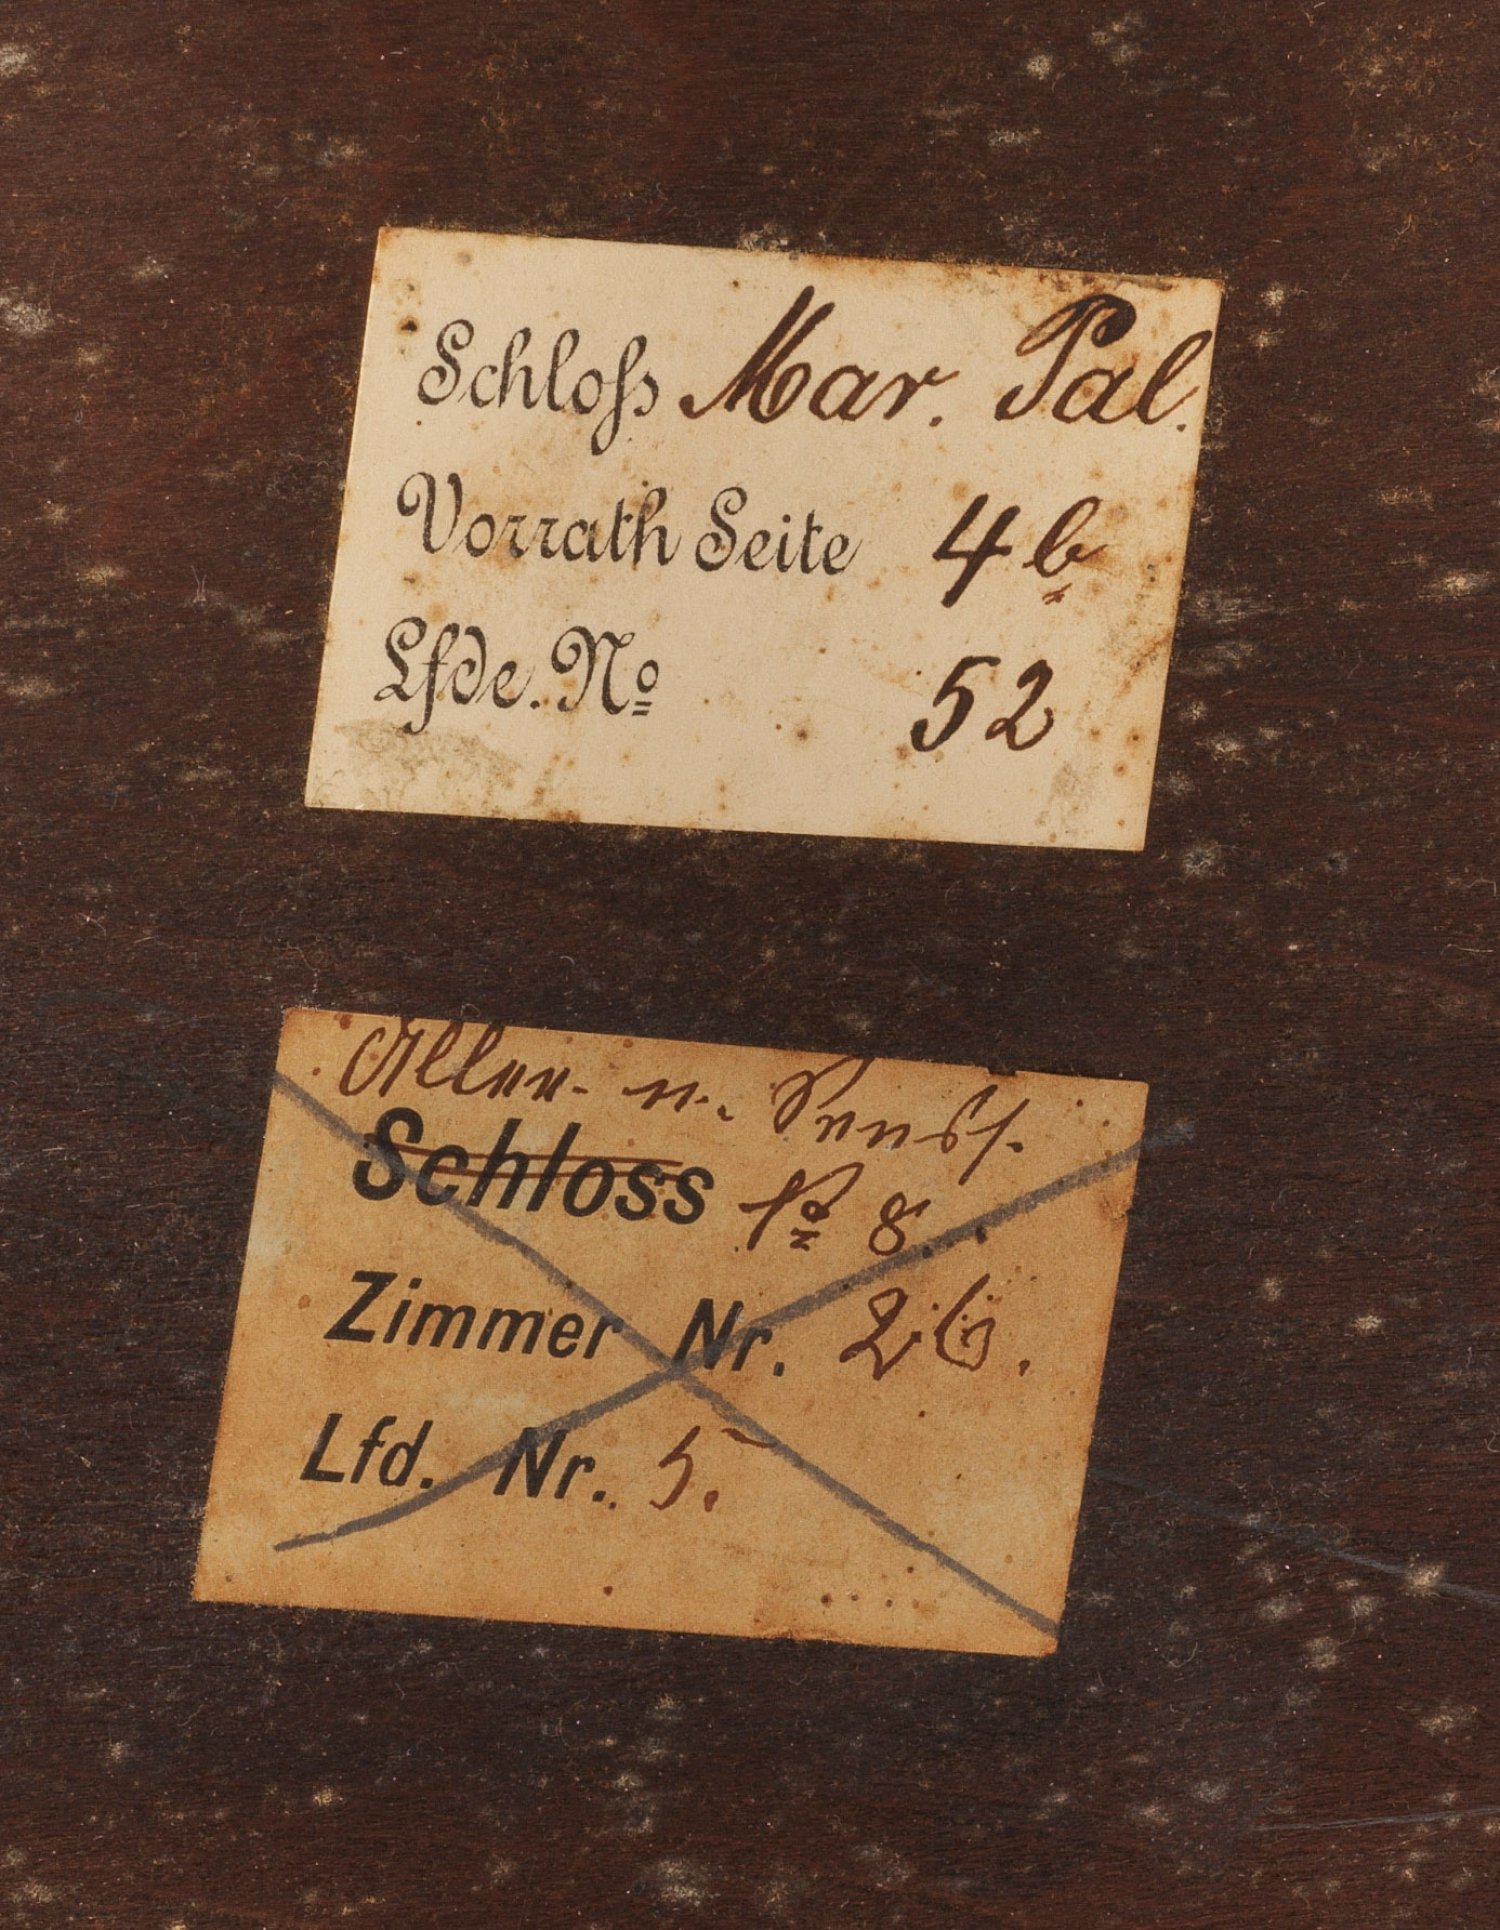 Schloſs Mar. Pal.
Vorrath Seite 4 b
Lfde. Nº 52
Allee- u.
Schloss No 8.
Zimmer Nr. 26.
Lfd. Nr. 5.